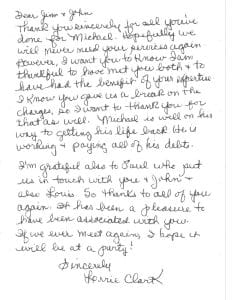 Dear Jim & John
Thank you sincerely for all you've
done for Michael. Hopefully we
will never need your services again
However, I want you to know I am
thankful to have met you both & to
have had the benefit of your expertise
I know you gave us a break on the
charges, so I want to thank you for
that as well. Michael is well on his
way to getting his life back He is
working & paying all of his debts.
I'm grateful also to Paul who put
us in touch with you & John &
also Louis. So thanks to all of you
again. It has been a pleasure to
have been associated with you.
If we ever meet again, I hope it
will be at a party!
Sincerely
Lorrie Clark